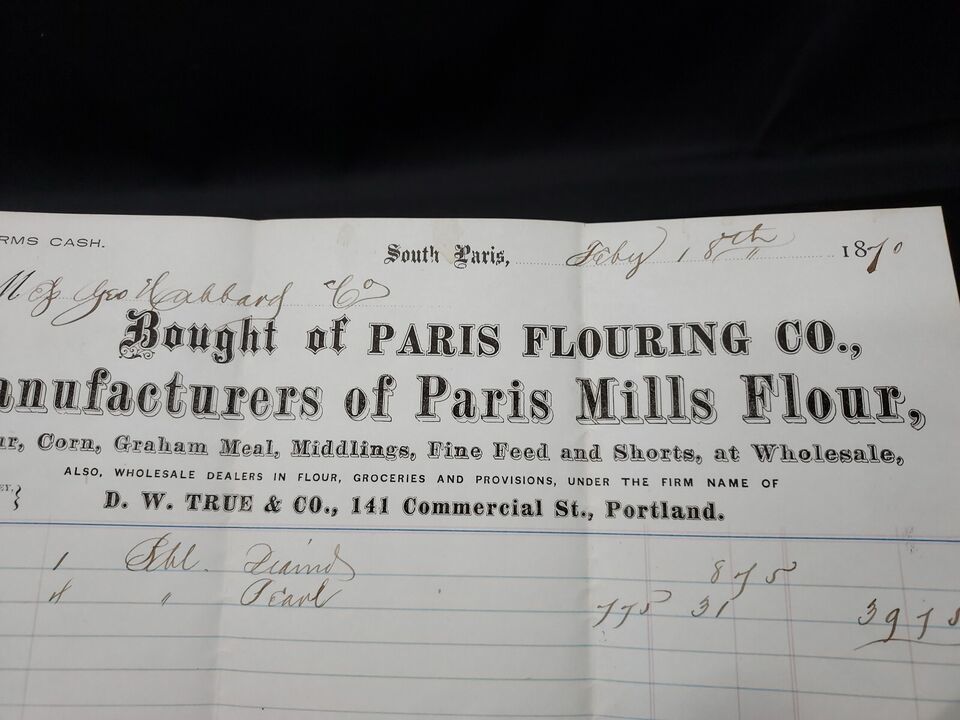 RMS CASH.
South Paris, Feby 18th 1870
Geo Habbard Co
Bought of PARIS FLOURING CO.,
anufacturers of Paris Mills Flour,
ur, Corn, Graham Meal, Middlings, Fine Feed and Shorts, at Wholesale,
ALSO, WHOLESALE DEALERS IN FLOUR, GROCERIES AND PROVISIONS, UNDER THE FIRM NAME OF
EY, }
D. W. TRUE & CO., 141 Commercial St., Portland.
1 Bbl. 875
4 " Pearl 775 31 3975